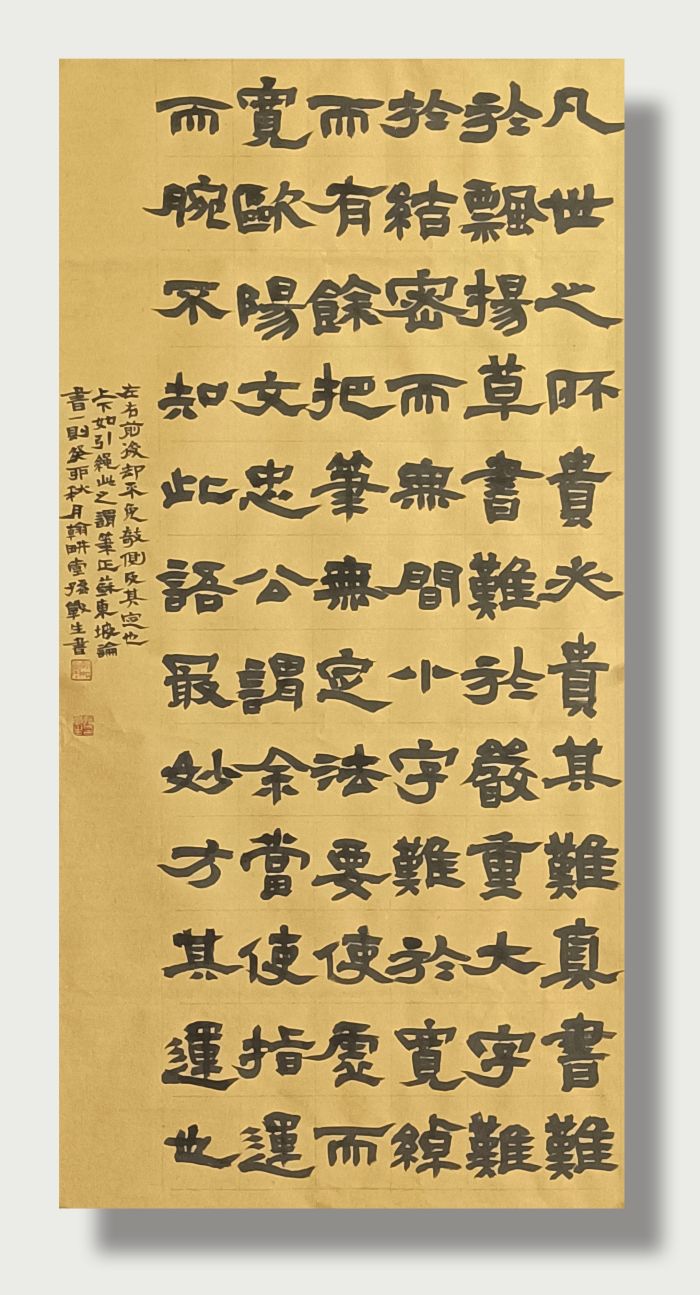 凡世之所貴必貴其難真書難
於飄揚草書難於嚴重大字難
於結密而無間小字難於寬綽
而有餘把筆無定法要使虛而
寬歐陽文忠公謂余當使指運
而腕不知此語最妙方其運也
左右前後却不免敧側及其定也
上下如引繩此之謂筆正蘇東坡論
書一則癸卯秋月翰畊堂孫戰生書